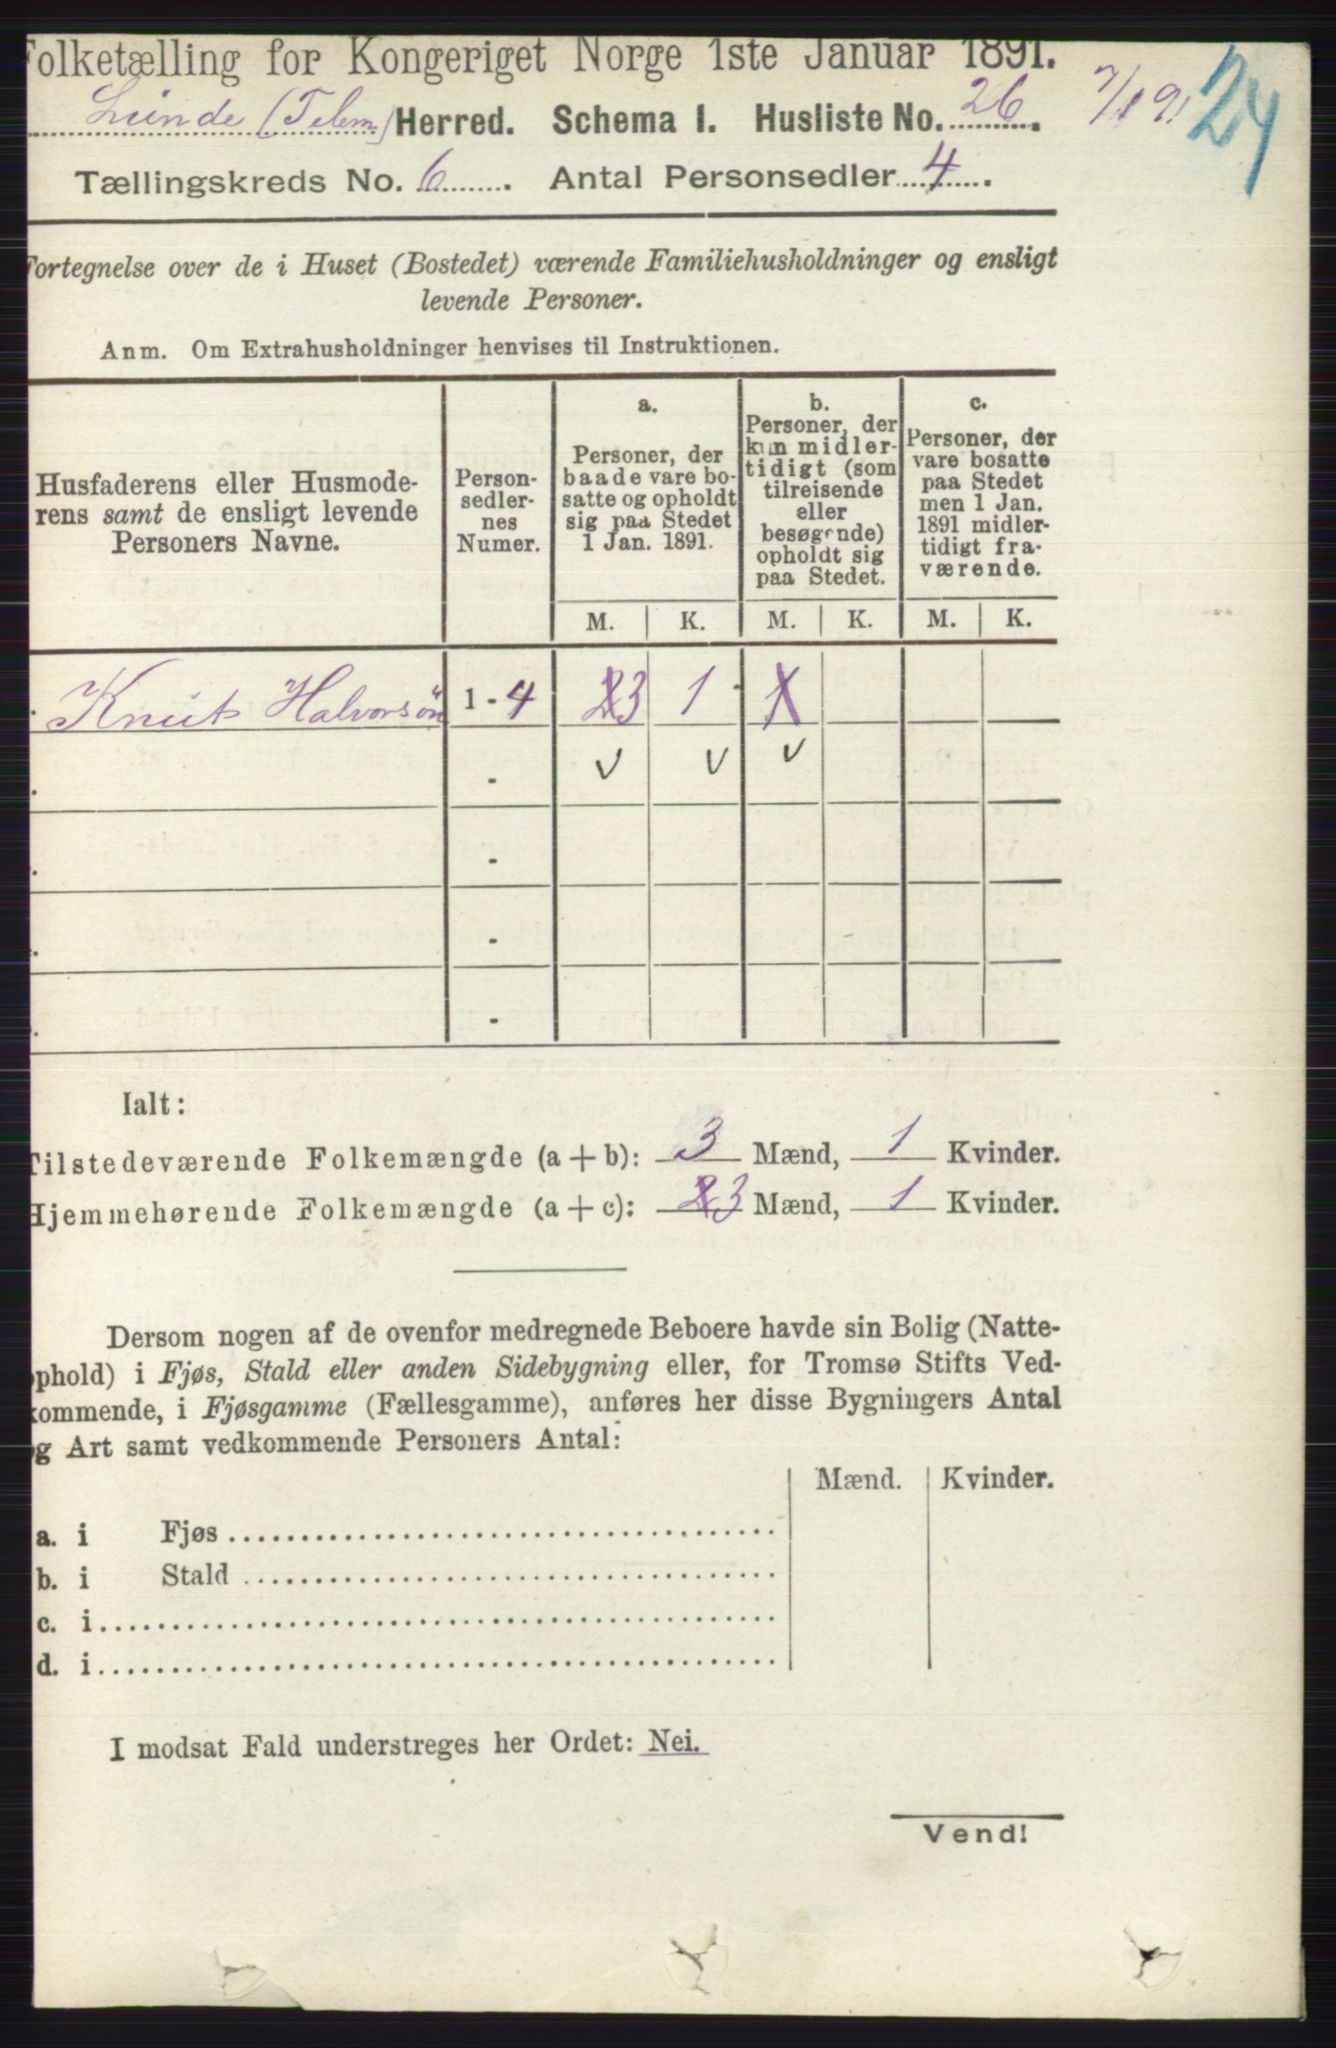 Folketælling for Kongeriget Norge 1ste Januar 1891.
Lunde (Telem.) Herred. Schema I. Husliste No. 26. 7/1 91 24
Tællingskreds No. 6. Antal Personsedler 4.
Fortegnelse over de i Huset (Bostedet) værende Familiehusholdninger og ensligt
levende Personer.
Anm. Om Extrahusholdninger henvises til Instruktionen.
Husfaderens eller Husmode-
rens samt de ensligt levende
Personers Navne.
Person-
sedler-
nes
Numer.
a.
Personer, der
baade vare bo-
satte og opholdt
sig paa Stedet
1 Jan. 1891.
b.
Personer, der
kun midler-
tidigt (som
tilreisende
eller
besøgende)
opholdt sig
paa Stedet.
c.
Personer, der
vare bosatte
paa Stedet
men 1 Jan.
1891 midler-
tidigt fra-
værende.
M. K. M. K. M. K.
Knut Halvorsøn 1 - 4 2 3 1 1
v v v
Ialt:
Tilstedeværende Folkemængde (a + b): 3 Mænd, 1 Kvinder.
Hjemmehørende Folkemængde (a + c): 2 3 Mænd, 1 Kvinder.
Dersom nogen af de ovenfor medregnede Beboere havde sin Bolig (Natte-
ophold) i Fjøs, Stald eller anden Sidebygning eller, for Tromsø Stifts Ved-
kommende, i Fjøsgamme (Fællesgamme), anføres her disse Bygningers Antal
og Art samt vedkommende Personers Antal:
Mænd. Kvinder.
a. i Fjøs
b. i Stald
c. i
d. i
I modsat Fald understreges her Ordet: Nei.
Vend!